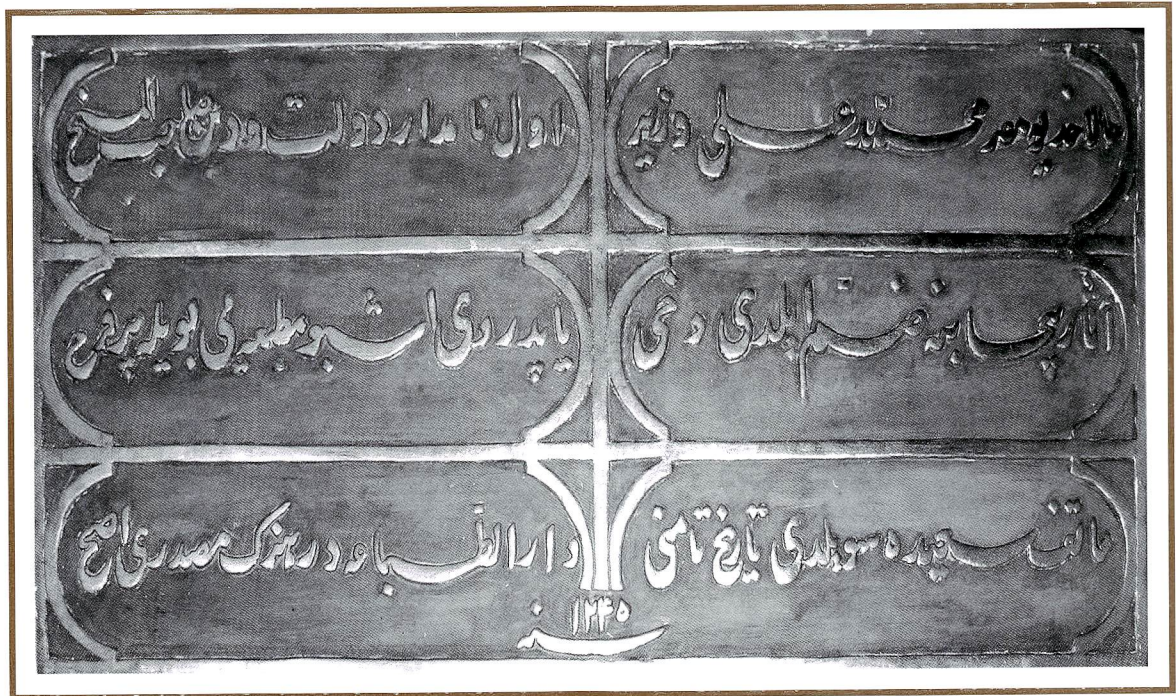 حالا خديو مصر محمد علی وزير
اول نامدار دولت ودين صاحب المنح
آثار بيحسابنه ضم ايلدی دخی
ياپدردی اشبو مطبعه يی بويله پرفرح
هاتف سعيده سويلدی تاريخ تامنی
دار الطباعه در هنرک مصدری اصح
سنه ١٢٣٥